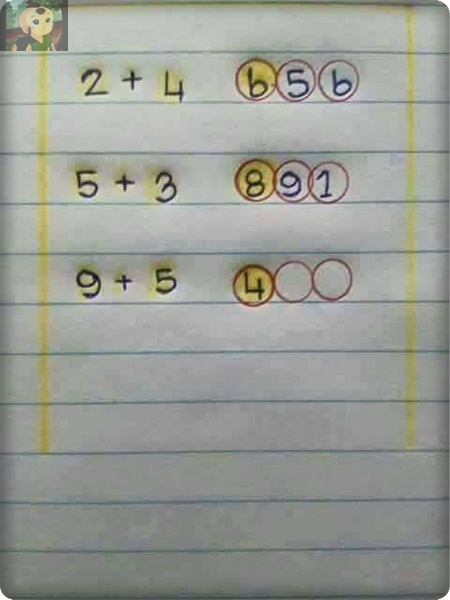 2 + 4 6 5 6
5 + 3 8 9 1
9 + 5 4